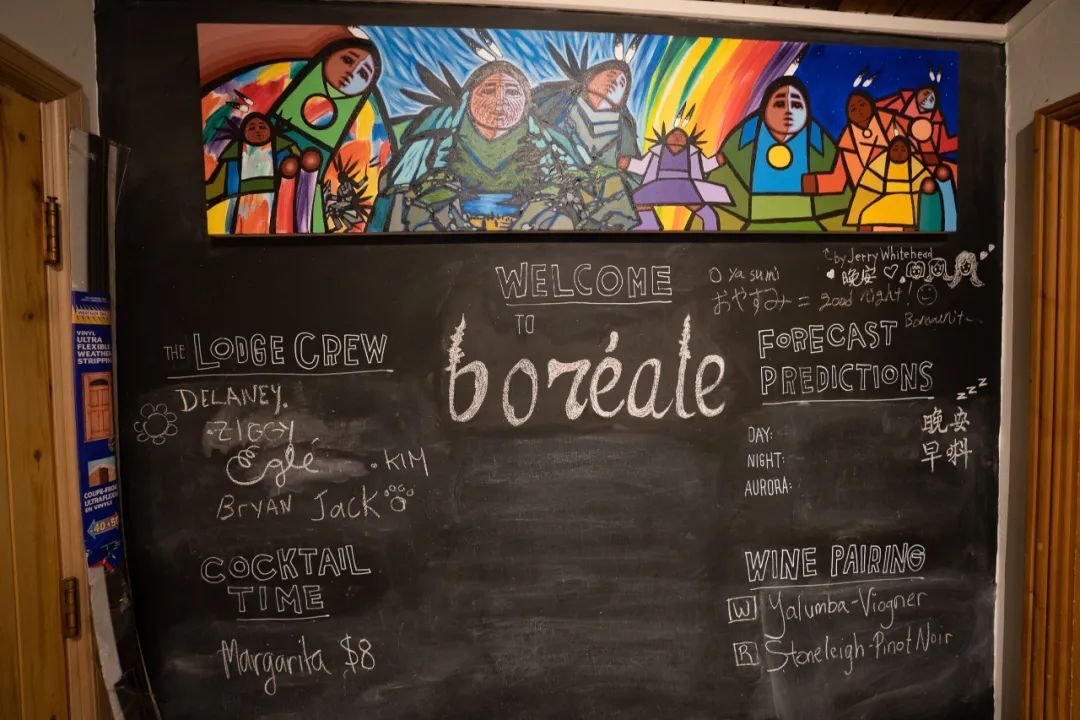 ↑by Jerry Whitehead
晚安
WELCOME
TO
boréale
O ya sumi
おやすみ = good night!
THE LODGE CREW
DELANEY.
ZIGGY
Eglé
• KIM
BRYAN Jack
COCKTAIL
TIME
Margarita $8
FORECAST
PREDICTIONS
zzz
晚安
早
DAY:
NIGHT:
AURORA:
WINE PAIRING
W Yalumba-Viogner
R Stoneleigh-Pinot Noir
VINYL
ULTRA
FLEXIBLE
WEATHER
STRIPPING
COUPE-FROID
ULTRAFLEXIBLE
EN VINYLE